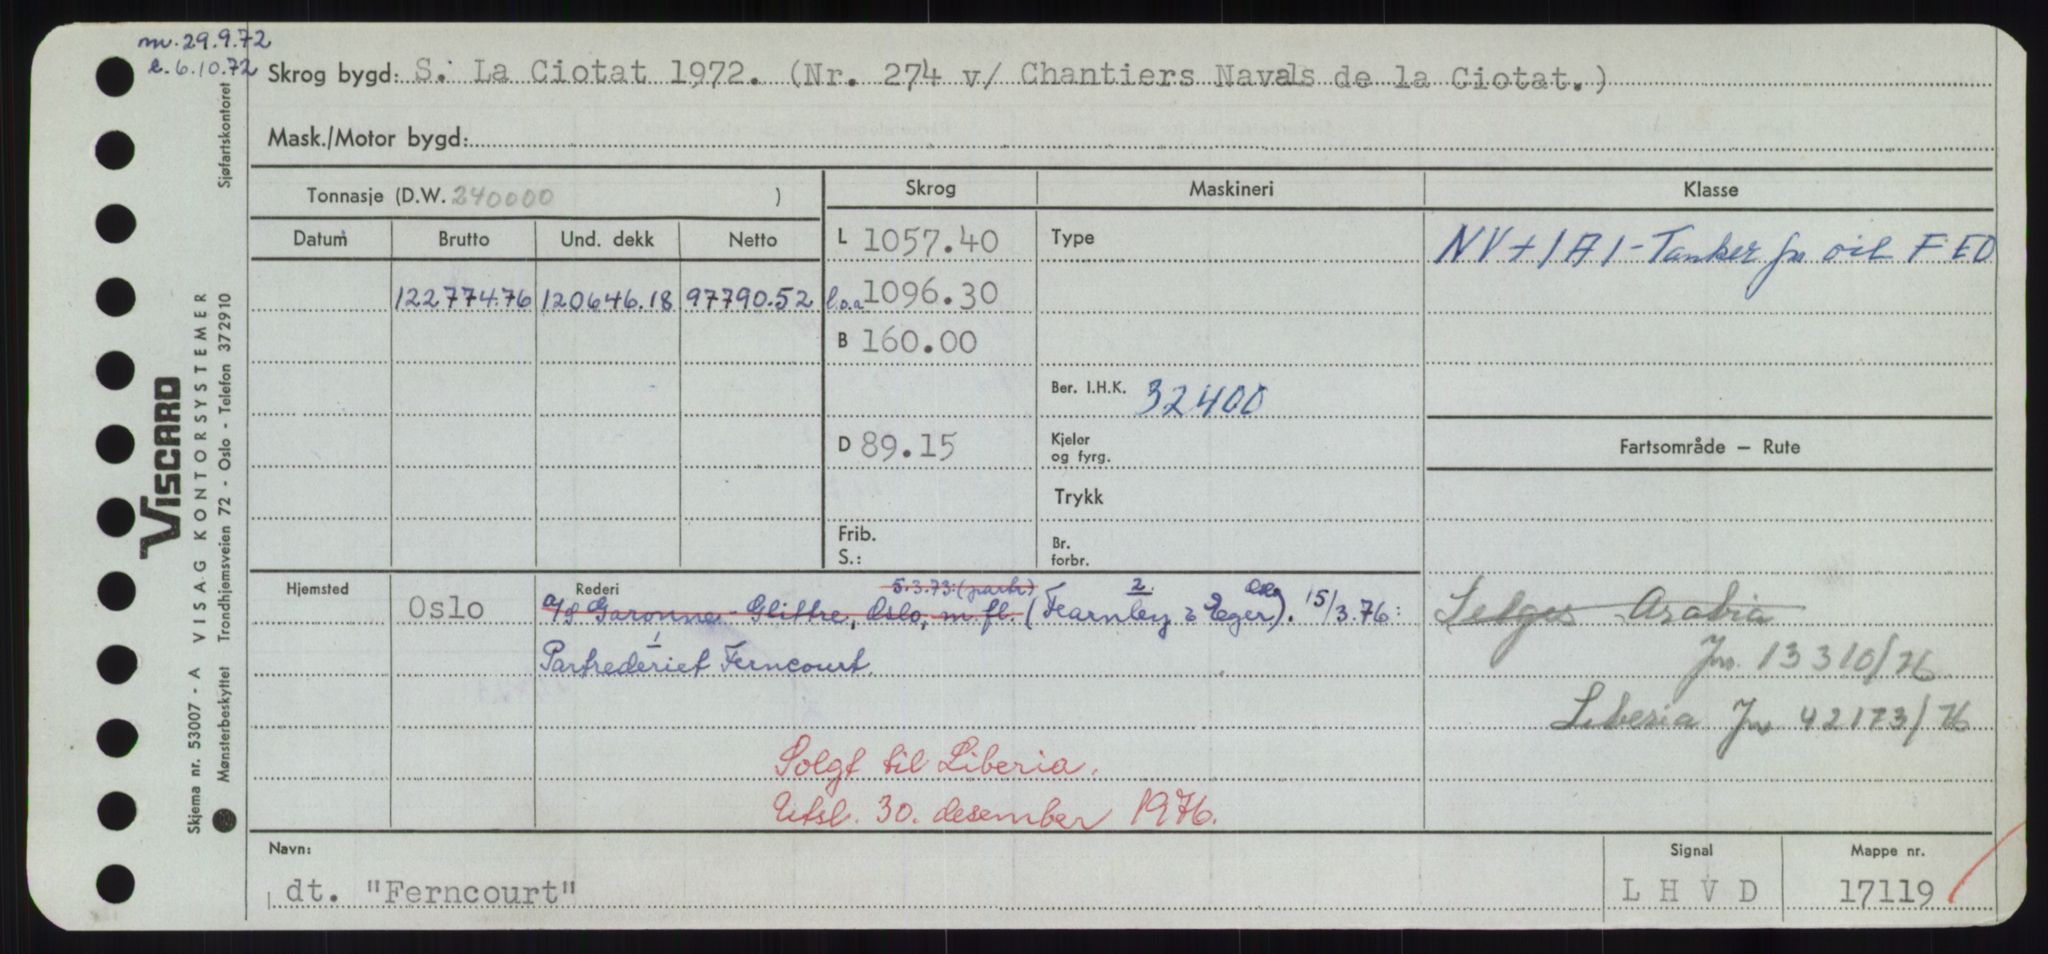 m. 29.9.72
e. 6.10.72
Skrog bygd: S. La Ciotat 1972. (Nr. 274 v/ Chantiers Navals de la Ciotat.)
Mask./Motor bygd:
Tonnasje (D.W. 240000 )
Skrog
Maskineri
Klasse
Datum
Brutto
Und. dekk
Netto
L 1057.40
Type
NV + 1A1 - Tanker for oil F EO
122774.76 120646.18 97790.52
l.o.a 1096.30
B 160.00
Ber. I.H.K. 32400
D 89.15
Kjeler og fyrg.
Fartsområde — Rute
Trykk
Frib. S.:
Br. forbr.
Hjemsted
Rederi
5.3.73: (partr)
2.
Oslo
Oslo
A/S Garonne - Glittre, Oslo, m. fl. (Fearnley & Eger). 15/3.76:
1
Partrederiet Ferncourt.
Selges Arabia
Jnr. 13310/76
Liberia Jnr 42173/76
Solgt til Liberia.
Utsl. 30. desember 1976.
Navn:
dt. "Ferncourt"
Signal
L H V D
Mappe nr.
17119
Sjøfartskontoret
VISCARD
VISAG KONTORSYSTEMER
Skjema nr. 53007 - A
Mønsterbeskyttet Trondhjemsveien 72 - Oslo - Telefon 372910